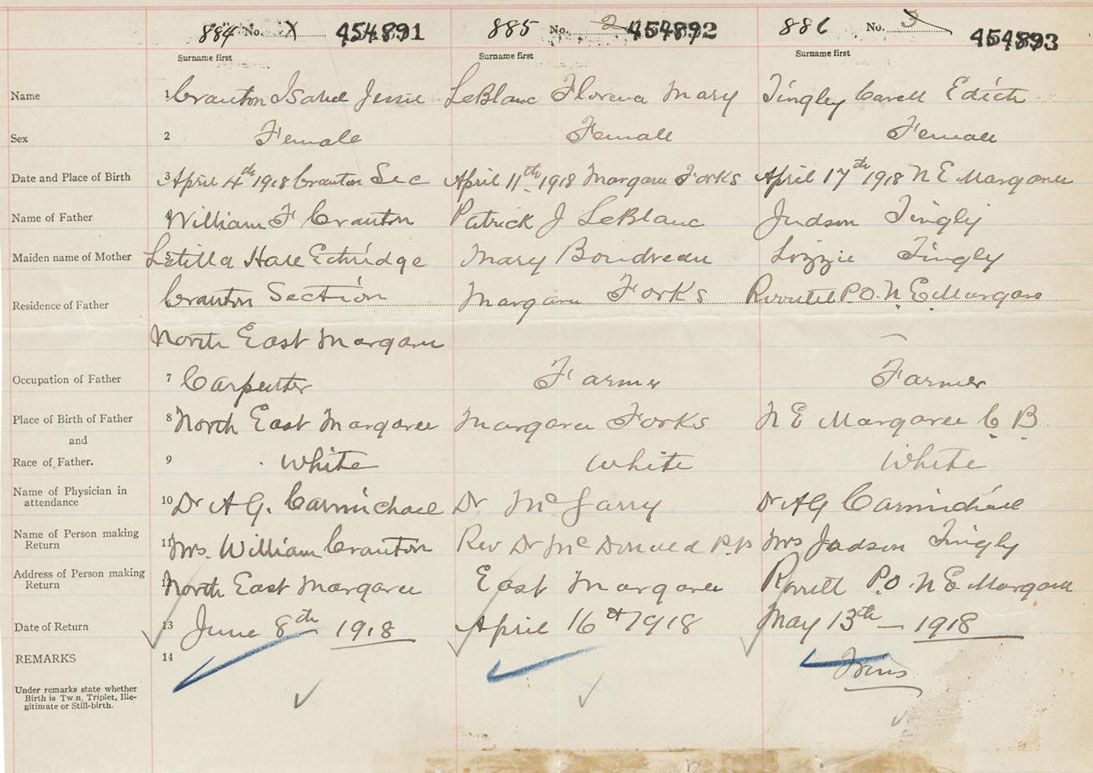 884 No. X 454891 885 No. 2 454892 886 No. 3 454893
Surname first Surname first Surname first
Name 1 Cranton Isabel Jessie LeBlanc Florena Mary Tingley Carell Edith
Sex 2 Female Female Female
Date and Place of Birth 3 April 4th 1918 Cranton Sec April 11th 1918 Margaree Forks April 17th 1918 N E Margaree
Name of Father William F Cranton Patrick J LeBlanc Judson Tingly
Maiden name of Mother 5 Letilla Hall Ethridge Mary Boudreau Lizzie Tingly
Residence of Father Cranton Section Margaree Forks P.O. N. E. Margaree
North East Margaree
Occupation of Father 7 Carpenter Farmer Farmer
Place of Birth of Father 8 North East Margaree Margaree Forks N E Margaree C. B.
and
Race of Father. 9 White White White
Name of Physician in
attendance 10 Dr A G. Carmichael Dr McGarry Dr A G Carmichael
Name of Person making
Return 11 Mrs. William Cranton Rev Dr McDonald P.P. Mrs Judson Tingly
Address of Person making
Return 12 North East Margaree East Margaree P.O. N E Margaree
Date of Return 13 June 8th 1918 April 16th 1918 May 13th – 1918
REMARKS 14 Twins
Under remarks state whether
Birth is Twin, Triplet, Ille-
gitimate or Still-birth.